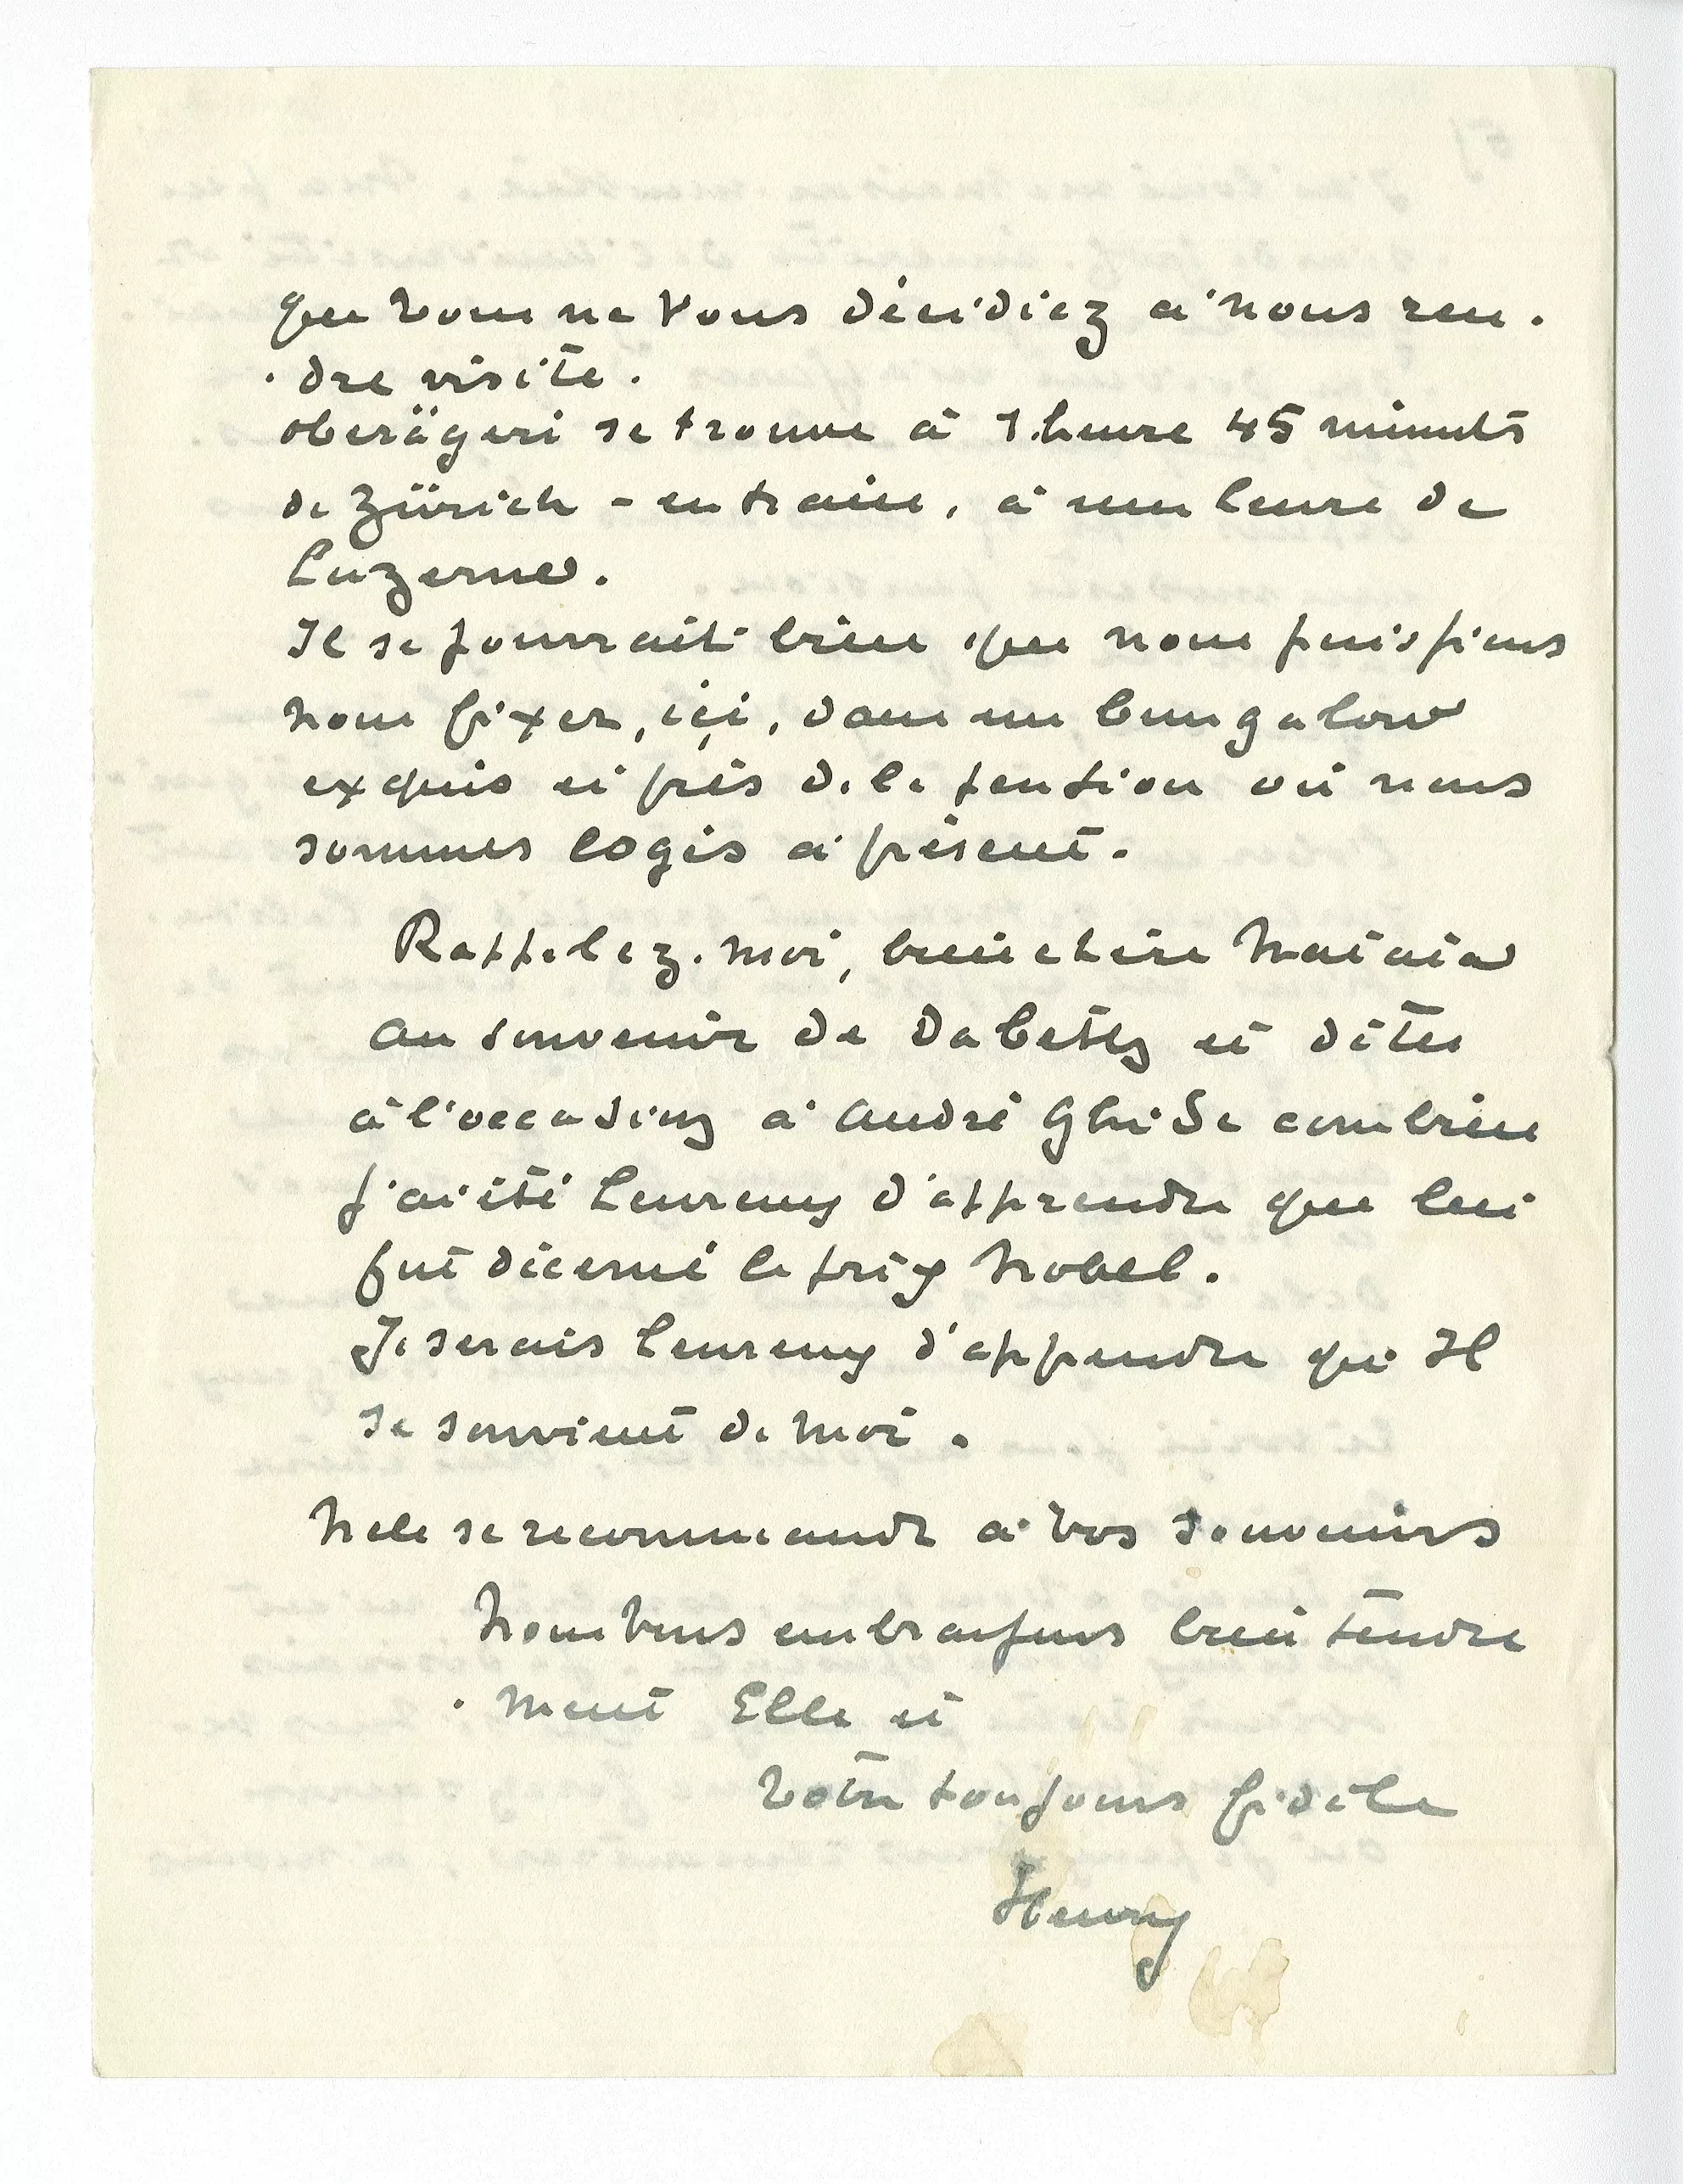 que vous ne Vous décidiez à nous ren.
. dre visite.
oberägeri se trouve à 1.heure 45 minutes
de Zürich - en train, à une heure de
Luzerne.
Il se pourrait bien que nous puissions
nous fixer, içi, dans un bungalow
exquis ei près de la pention où nous
sommes logés à présent.
Rappelez-moi, bien chère
au souvenir de Dabetz et dites
à l'occasion à André Ghide combien
j'ai été heureux d'apprendre que lui
fut décerné le prix Nobel.
Je serais heureux d'apprendre qu'Il
se souvient de moi.
Nele se recommande à vos souvenirs
Nous Vous embrassons bien tendre
. ment Elle et
Votre toujours fidèle
Henry